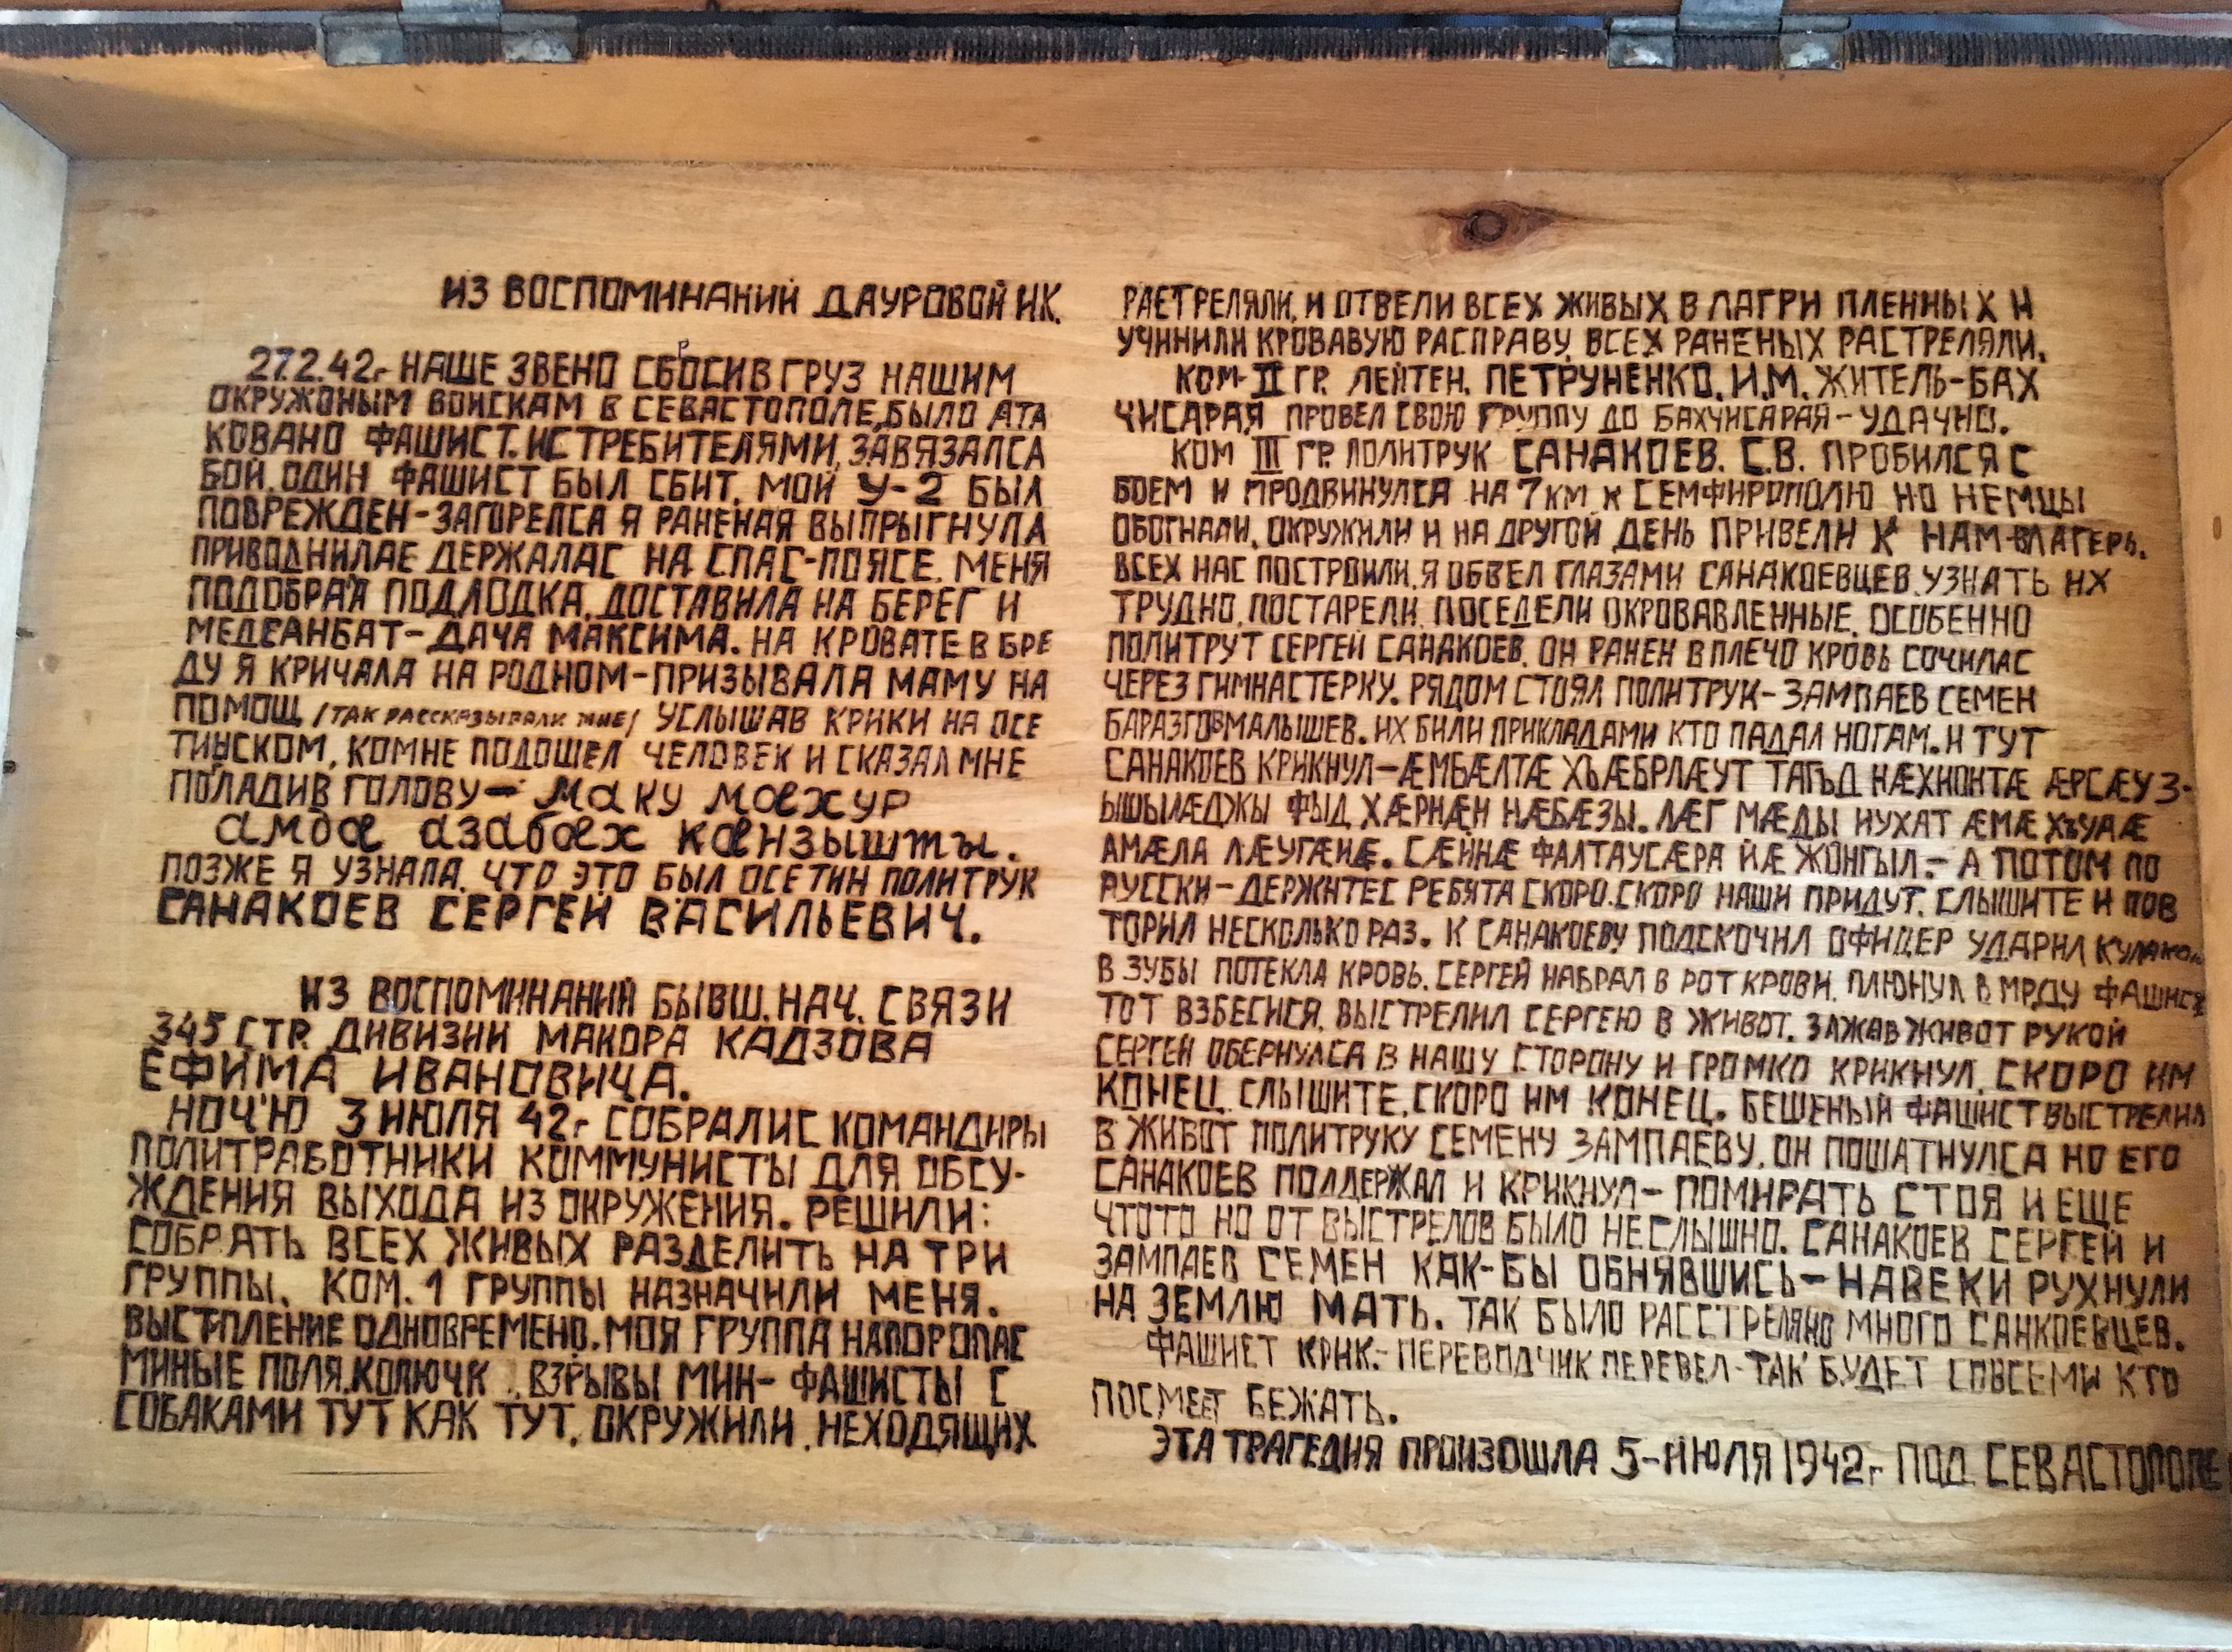 ИЗ ВОСПОМИНАНИЙ ДАУРОВОЙ Н.К.
27.2.42г НАШЕ ЗВЕНО СБРОСИВ ГРУЗ НАШИМ
ОКРУЖОНЫМ ВОИСКАМ В СЕВАСТОПОЛЕ, БЫЛО АТА
КОВАНО ФАШИСТ. ИСТРЕБИТЕЛЯМИ, ЗАВЯЗАЛСА
БОЙ. ОДИН ФАШИСТ БЫЛ СБИТ. МОЙ У-2 БЫЛ
ПОВРЕЖДЕН-ЗАГОРЕЛСА Я РАНЕНАЯ ВЫПРЫГНУЛА
ПРИВОДНИЛАС ДЕРЖАЛАС НА СПАС-ПОЯСЕ. МЕНЯ
ПОДОБРАЛА ПОДЛОДКА, ДОСТАВИЛА НА БЕРЕГ И
МЕДСАНБАТ-ДАЧА МАКСИМА. НА КРОВАТЕ В БРЕ
ДУ Я КРИЧАЛА НА РОДНОМ-ПРИЗЫВАЛА МАМУ НА
ПОМОЩ /ТАК РАССКАЗЫВАЛИ МНЕ/ УСЛЫШАВ КРИКИ НА ОСЕ
ТИНСКОМ, КОМНЕ ПОДОШЕЛ ЧЕЛОВЕК И СКАЗАЛ МНЕ
ПОЛАДИВ ГОЛОВУ- маку мӕхур
амдӕ азабӕх кӕнзышты.
ПОЗЖЕ Я УЗНАЛА. ЧТО ЭТО БЫЛ ОСЕТИН ПОЛИТРУК
САНАКОЕВ СЕРГЕЙ ВАСИЛЬЕВИЧ.
ИЗ ВОСПОМИНАНИЙ БЫВШ. НАЧ. СВЯЗИ
345 СТР. ДИВИЗИИ МАЙОРА КАДЗОВА
ЕФИМА ИВАНОВИЧА.
НОЧ'Ю 3 ИЮЛЯ 42г СОБРАЛИС КОМАНДИРЫ
ПОЛИТРАБОТНИКИ КОММУНИСТЫ ДЛЯ ОБСУ-
ЖДЕНИЯ ВЫХОДА ИЗ ОКРУЖЕНИЯ. РЕШИЛИ:
СОБРАТЬ ВСЕХ ЖИВЫХ РАЗДЕЛИТЬ НА ТРИ
ГРУППЫ. КОМ. 1 ГРУППЫ НАЗНАЧИЛИ МЕНЯ.
ВЫСТПЛЕНИЕ ОДНОВРЕМЕНО. МОЯ ГРУППА НАПОРОЛАС
МИНЫЕ ПОЛЯ. КОЛЮЧК. ВЗРЫВЫ МИН- ФАШИСТЫ С
СОБАКАМИ ТУТ КАК ТУТ. ОКРУЖИЛИ. НЕХОДЯЩИХ
РАСТРЕЛЯЛИ. И ОТВЕЛИ ВСЕХ ЖИВЫХ В ЛАГРИ ПЛЕННЫХ И
УЧИНИЛИ КРОВАВУЮ РАСПРАВУ. ВСЕХ РАНЕНЫХ РАСТРЕЛЯЛИ.
КОМ-II ГР. ЛЕЙТЕН. ПЕТРУНЕНКО. И.М. ЖИТЕЛЬ-БАХ
ЧИСАРАЯ ПРОВЕЛ СВОЮ ГРУППУ ДО БАХЧИСАРАЯ-УДАЧНО.
КОМ III ГР. ПОЛИТРУК САНАКОЕВ. С.В. ПРОБИЛСЯ С
БОЕМ И ПРОДВИНУЛСА НА 7КМ К СЕМФИРОПОЛЮ НО НЕМЦЫ
ОБОГНАЛИ. ОКРУЖИЛИ И НА ДРУГОЙ ДЕНЬ ПРИВЕЛИ К НАМ-ВЛАГЕРЬ.
ВСЕХ НАС ПОСТРОИЛИ. Я ОБВЕЛ ГЛАЗАМИ САНАКОЕВЦЕВ. УЗНАТЬ ИХ
ТРУДНО. ПОСТАРЕЛИ. ПОСЕДЕЛИ ОКРОВАВЛЕННЫЕ. ОСОБЕННО
ПОЛИТРУТ СЕРГЕЙ САНАКОЕВ. ОН РАНЕН В ПЛЕЧО КРОВЬ СОЧИЛАС
ЧЕРЕЗ ГИМНАСТЕРКУ. РЯДОМ СТОЯЛ ПОЛИТРУК-ЗАМПАЕВ СЕМЕН
БАРАЗГОВ МАЛЫШЕВ. ИХ БИЛИ ПРИКЛАДАМИ КТО ПАДАЛ НОГАМ. И ТУТ
САНАКОЕВ КРИКНУЛ-ÆМБÆЛТÆ ХЪÆБРЛÆУТ ТАГЪД НÆХИОНТÆ ÆРСÆУЗ-
ЫШЫЛÆДЖЫ ФЫД ХÆРНÆН НÆБÆЗЫ. ЛÆГ МÆДЫ НУХАТ ÆМÆ ХЪУАÆ
АМÆЛА ЛÆУГÆЙÆ. СÆЙНÆ ФАЛТАУСÆРА ЙÆ ЖОНГЫЛ.- А ПОТОМ ПО
РУССКИ-ДЕРЖИТЕС РЕБЯТА СКОРО. СКОРО НАШИ ПРИДУТ. СЛЫШИТЕ И ПОВ
ТОРИЛ НЕСКОЛЬКО РАЗ. К САНАКОЕВУ ПОДСКОЧИЛ ОФИЦЕР УДАРИЛ КУЛАКОМ
В ЗУБЫ ПОТЕКЛА КРОВЬ. СЕРГЕЙ НАБРАЛ В РОТ КРОВИ. ПЛЮНУЛ В МРДУ ФАШИСТ
ТОТ ВЗБЕСИСЯ. ВЫСТРЕЛИЛ СЕРГЕЮ В ЖИВОТ. ЗАЖАВ ЖИВОТ РУКОЙ
СЕРГЕЙ ОБЕРНУЛСА В НАШУ СТОРОНУ И ГРОМКО КРИКНУЛ. СКОРО ИМ
КОНЕЦ. СЛЫШИТЕ. СКОРО ИМ КОНЕЦ. БЕШЕНЫЙ ФАШИСТ ВЫСТРЕЛИЛ
В ЖИВОТ ПОЛИТРУКУ СЕМЕНУ ЗАМПАЕВУ. ОН ПОШАТНУЛСА НО ЕГО
САНАКОЕВ ПОДДЕРЖАЛ И КРИКНУЛ- ПОМИРАТЬ СТОЯ И ЕЩЕ
ЧТОТО НО ОТ ВЫСТРЕЛОВ БЫЛО НЕСЛЫШНО. САНАКОЕВ СЕРГЕЙ И
ЗАМПАЕВ СЕМЕН КАК-БЫ ОБНЯВШИСЬ- НАВЕКИ РУХНУЛИ
НА ЗЕМЛЮ МАТЬ. ТАК БЫЛО РАССТРЕЛЯНО МНОГО САНКОЕВЦЕВ.
ФАШИСТ КРИК.- ПЕРЕВОДЧИК ПЕРЕВЕЛ-ТАК БУДЕТ СОВСЕМИ КТО
ПОСМЕЕТ БЕЖАТЬ.
ЭТА ТРАГЕДИЯ ПРОИЗОШЛА 5-ИЮЛЯ 1942г ПОД СЕВАСТОПОЛЕ